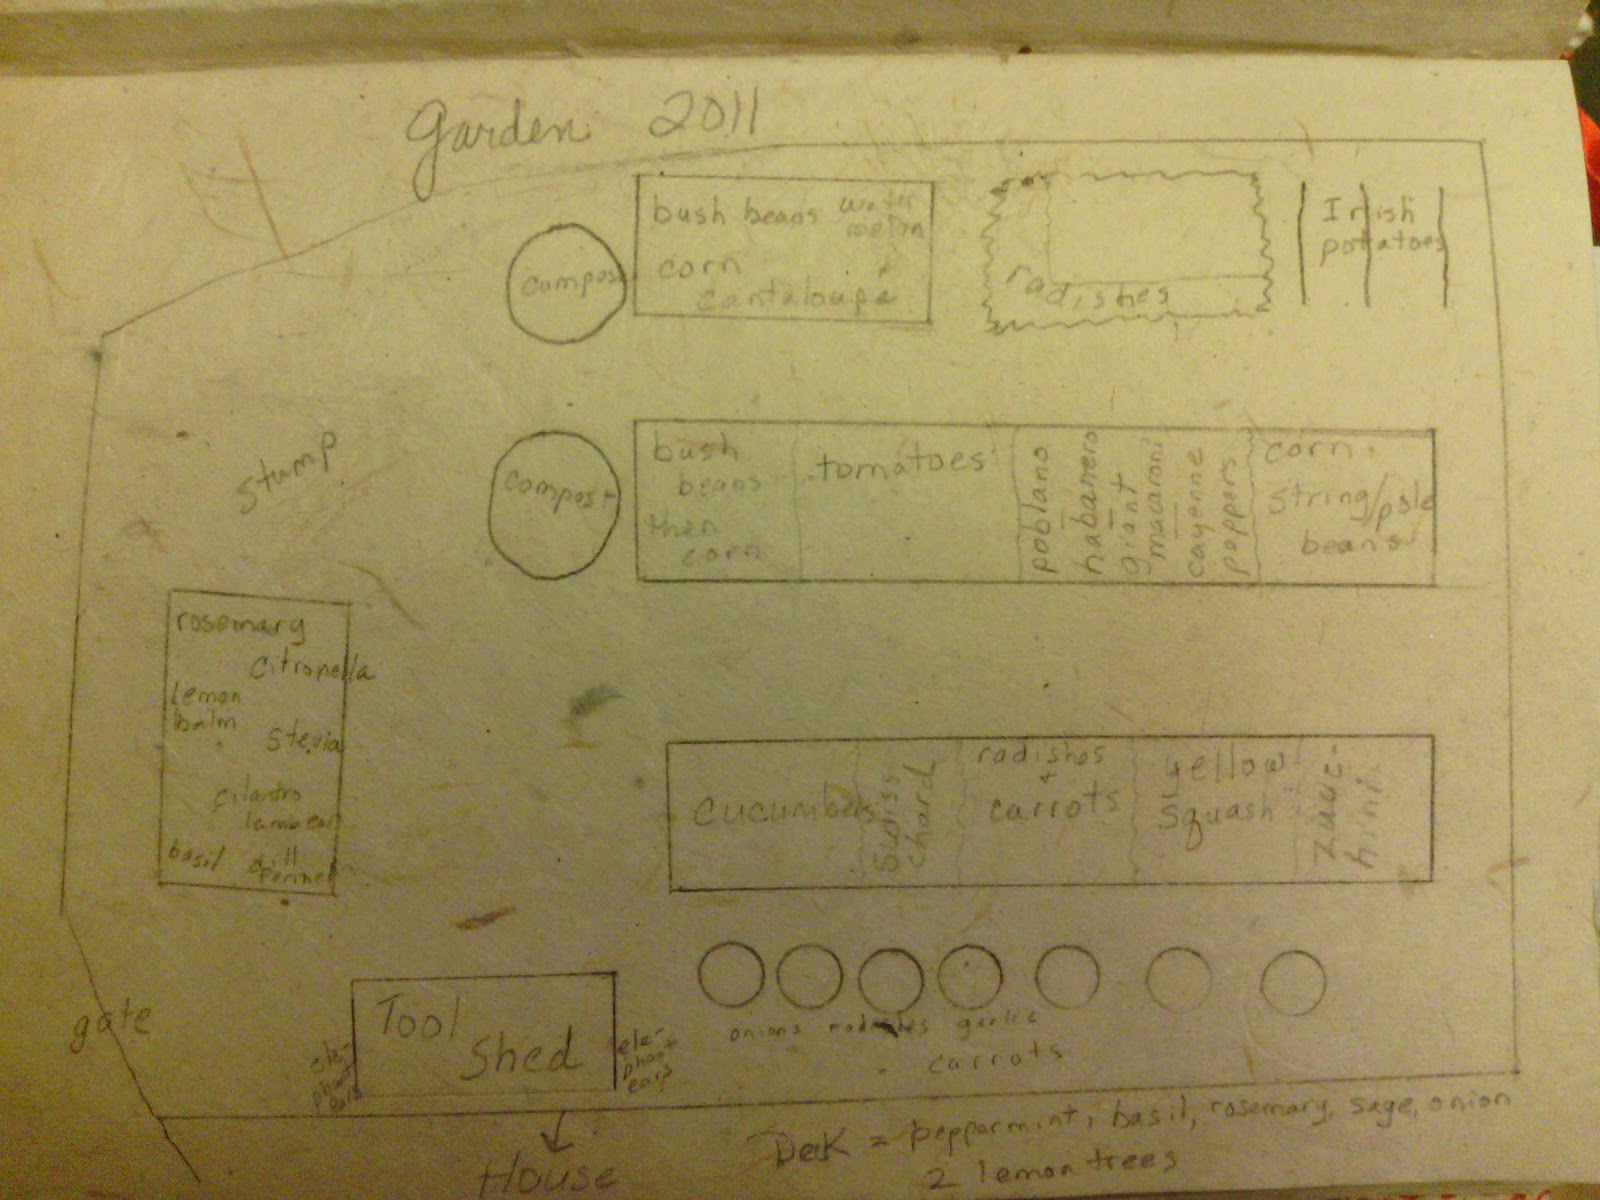 Garden 2011
compost
bush beans water
melon
corn
cantaloupe
radishes
Irish
potatoes
stump
compost
bush
beans
then
corn
tomatoes
poblano
habanero
giant
macaroni
cayenne
peppers
corn
string/pole
beans
rosemary
citronella
lemon
balm
stevia
cilantro
lambear
basil dill
fennel
cucumbers
swiss
chard
radishes
+
carrots
yellow
squash
zucc-
hini
gate
Tool
Shed
ele-
phant
ears
ele-
phant
ears
onions radishes garlic
carrots
House
Deck = peppermint, basil, rosemary, sage, onion
2 lemon trees